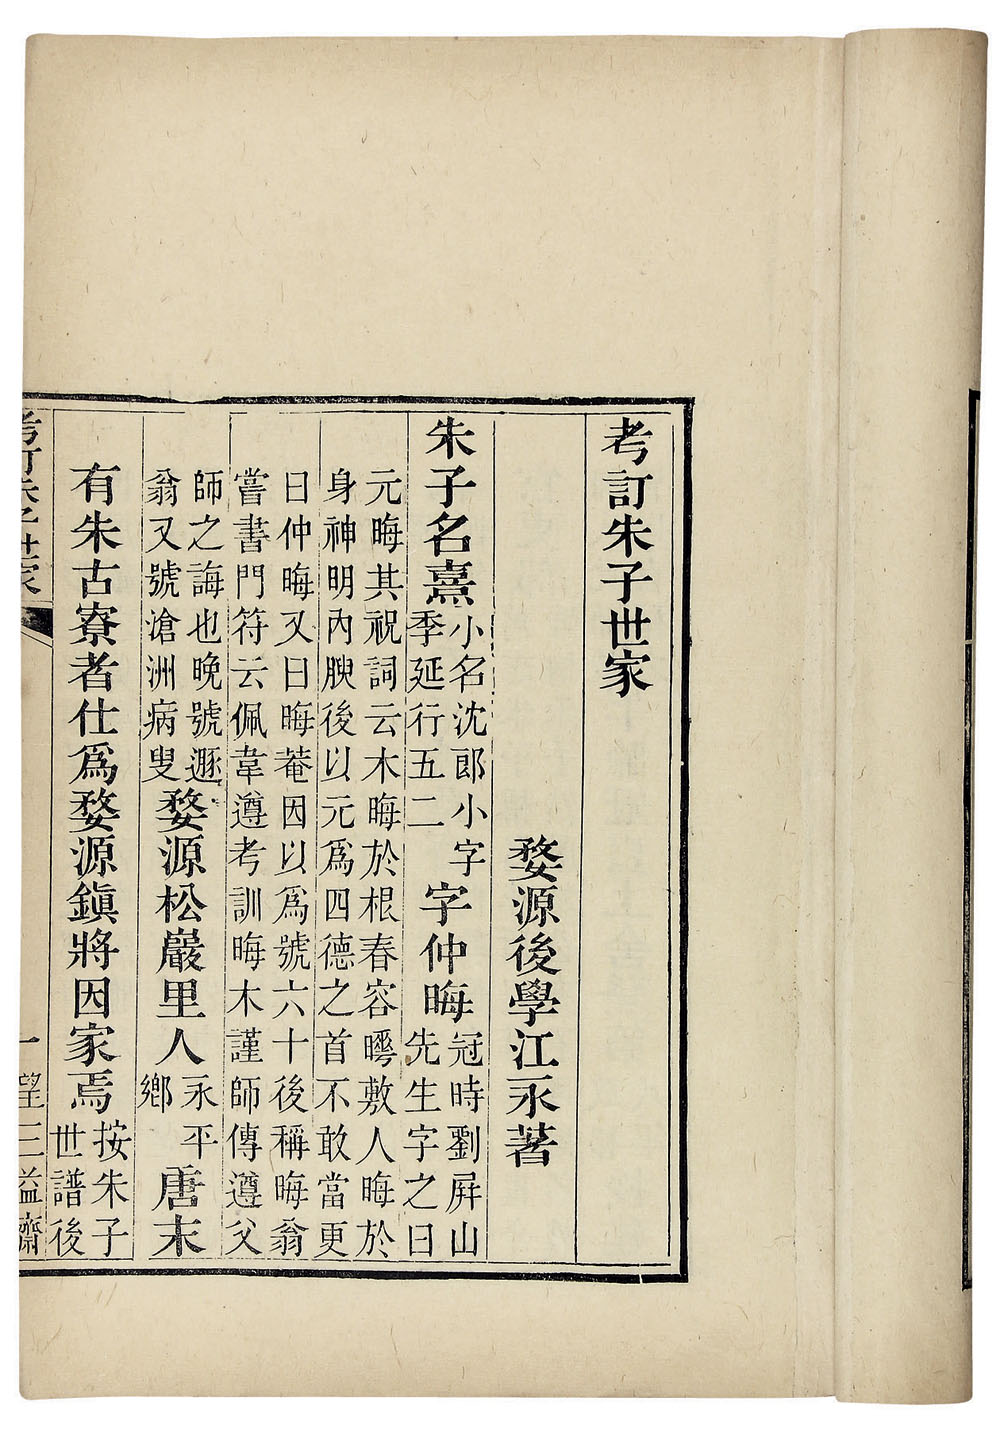 考訂朱子世家
婺源後學江永著
朱子名熹小名沈郎小字季延行五二字仲晦冠時劉屏山先生字之曰
元晦其祝詞云木晦於根春容曄敷人晦於
身神明內腴後以元爲四德之首不敢當更
曰仲晦又曰晦菴因以爲號六十後稱晦翁
嘗書門符云佩韋遵考訓晦木謹師傳遵父
師之誨也晚號遯翁又號滄洲病叟婺源松巖里人永平鄉唐末
有朱古寮者仕爲婺源鎭將因家焉按朱子世譜後
考訂朱子世家 一 望三益齋